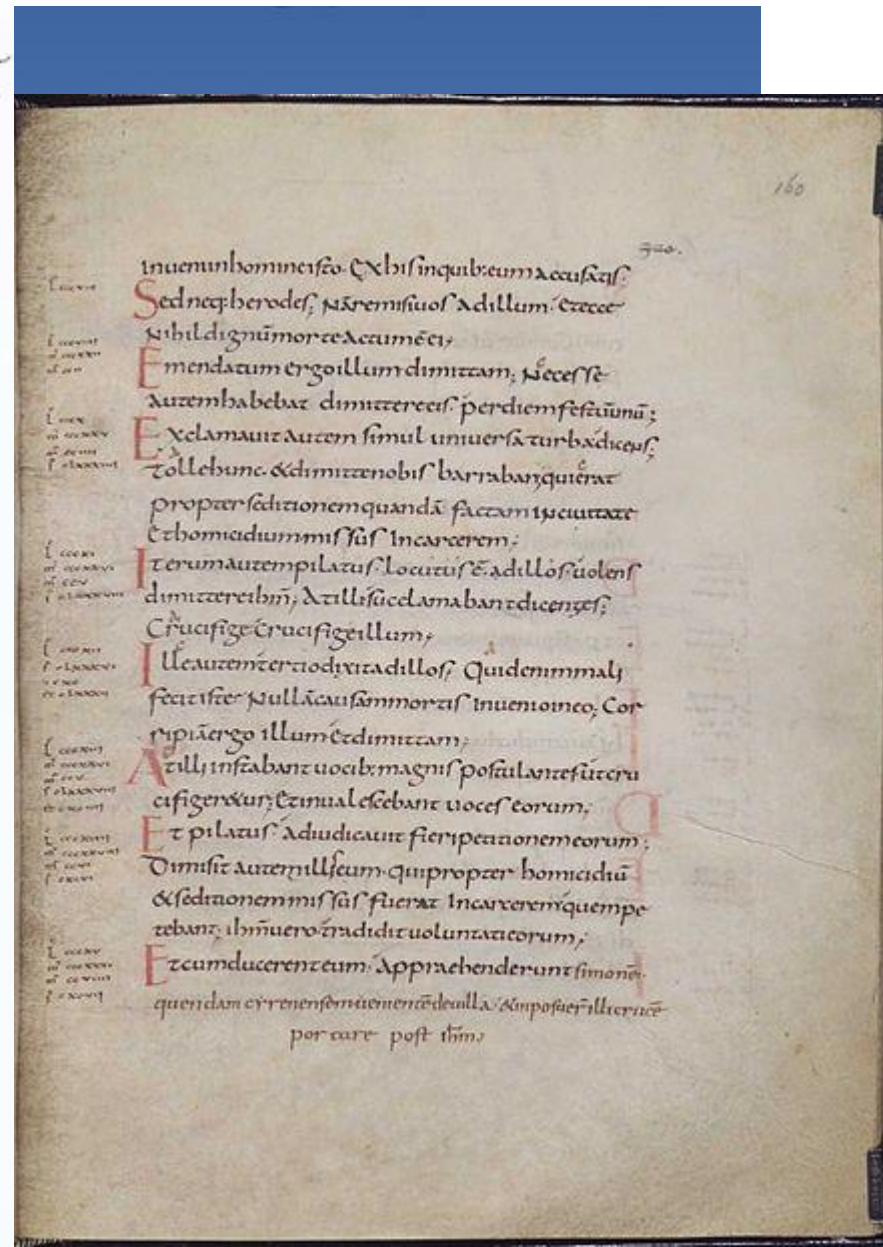 160
inuenio in homine isto. Ex his in quib: eum accusatis;
Sed neq: herodes; Nā remisi uos ad illum. Et ecce
Nihil dignū morte actum ē ei;
Emendatum ergo illum dimittam; Necesse
autem habebat dimittere eis. per diem festū unū;
Exclamauit autem simul uniuersa turba dicens;
Tolle hunc. & dimitte nobis barraban; qui erat
propter seditionem quandā factam in ciuitate
Et homicidium missus in carcerem;
Iterum autem pilatus. locutus ē. ad illos. uolens
dimittere ihm̄; At illi succlamabant dicentes;
Crucifige. Crucifige illum;
Ille autem tertio dixit ad illos; Quid enim mali
fecit iste; Nullā causam mortis inuenio in eo; Cor
ripiā ergo illum. Et dimittam;
At illi instabant uocib: magnis postulantes. ut cru
cifiger&ur; Et inualescebant uoces eorum;
Et pilatus. Adiudicauit fieri petitionem eorum;
Dimisit autem illis eum. qui propter homicidiū
& seditionem missus fuerat in carcerem; quem pe
tebant; ihm̄ uero. tradidit uoluntati eorum;
Et cum ducerent eum. Appraehenderunt simonē.
quendam cyrenensem uenientē de uilla. & inposuer̄ illi crucē
portare post ihm̄;